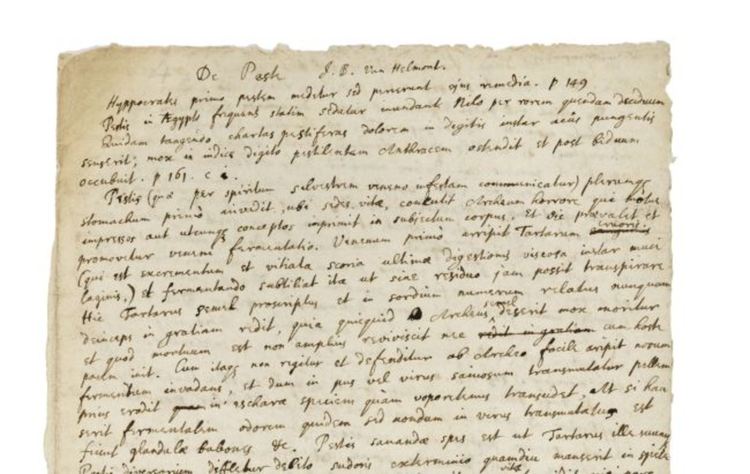 De Peste J. B. Van Helmont.
Hyppocrates primo pestem medetur sed perierunt ejus remedia. p 149
Pestis in Ægypto frequens statim sedatur inundante Nilo per rorem quendam deciduum
Quidam tangendo chartas pestiferas dolorem in digitis instar acûs pungentis
senserit; mox in indice digito pestilentem Anthracem ostendit et post biduum
occubuit. p 161. c
Pestis (quæ per spiritum silvestrem veneno infestam communicatur) plerumq
stomachum primò invadit, ubi sedes vitæ, concutit Archeum horrore qui
impressos aut utcunq conceptos imprimit in subjectum corpus. Et sic prævalet et
promovetur veneni fermentatio. Venenum primò arripit Tartarum cruoris
(qui est excrementum et vitiata scoria ultimæ digestionis viscosa instar muci
laginis.) et fermentando subtiliat ita ut sine residuo jam possit transpirare
Hic Tartarus semel proscriptus et in sordium numerum relatus nunquam
deinceps in gratiam redit, quia quicquid Archeus semel deserit mox moritur
et quod mortuum est non amplius reviviscit nec redit in gratiam cum hoste
pacem init. Cum itaq non regitur et defenditur ab Archeo facile aripit novum
fermentum invadens, et dum in pus vel virus saniosum transmutatur pellem
prius erodit in escharæ speciem quam vaporemus transudet. At si hau
serit fermentalem odorem quidem sed nondum in virus transmutatus est
fiunt glandulæ bubones &c. Pestis sanandæ spes est ut Tartarus ille
Pestis diversarium diffletur debito sudoris exterminio quamdiu manserit in specie